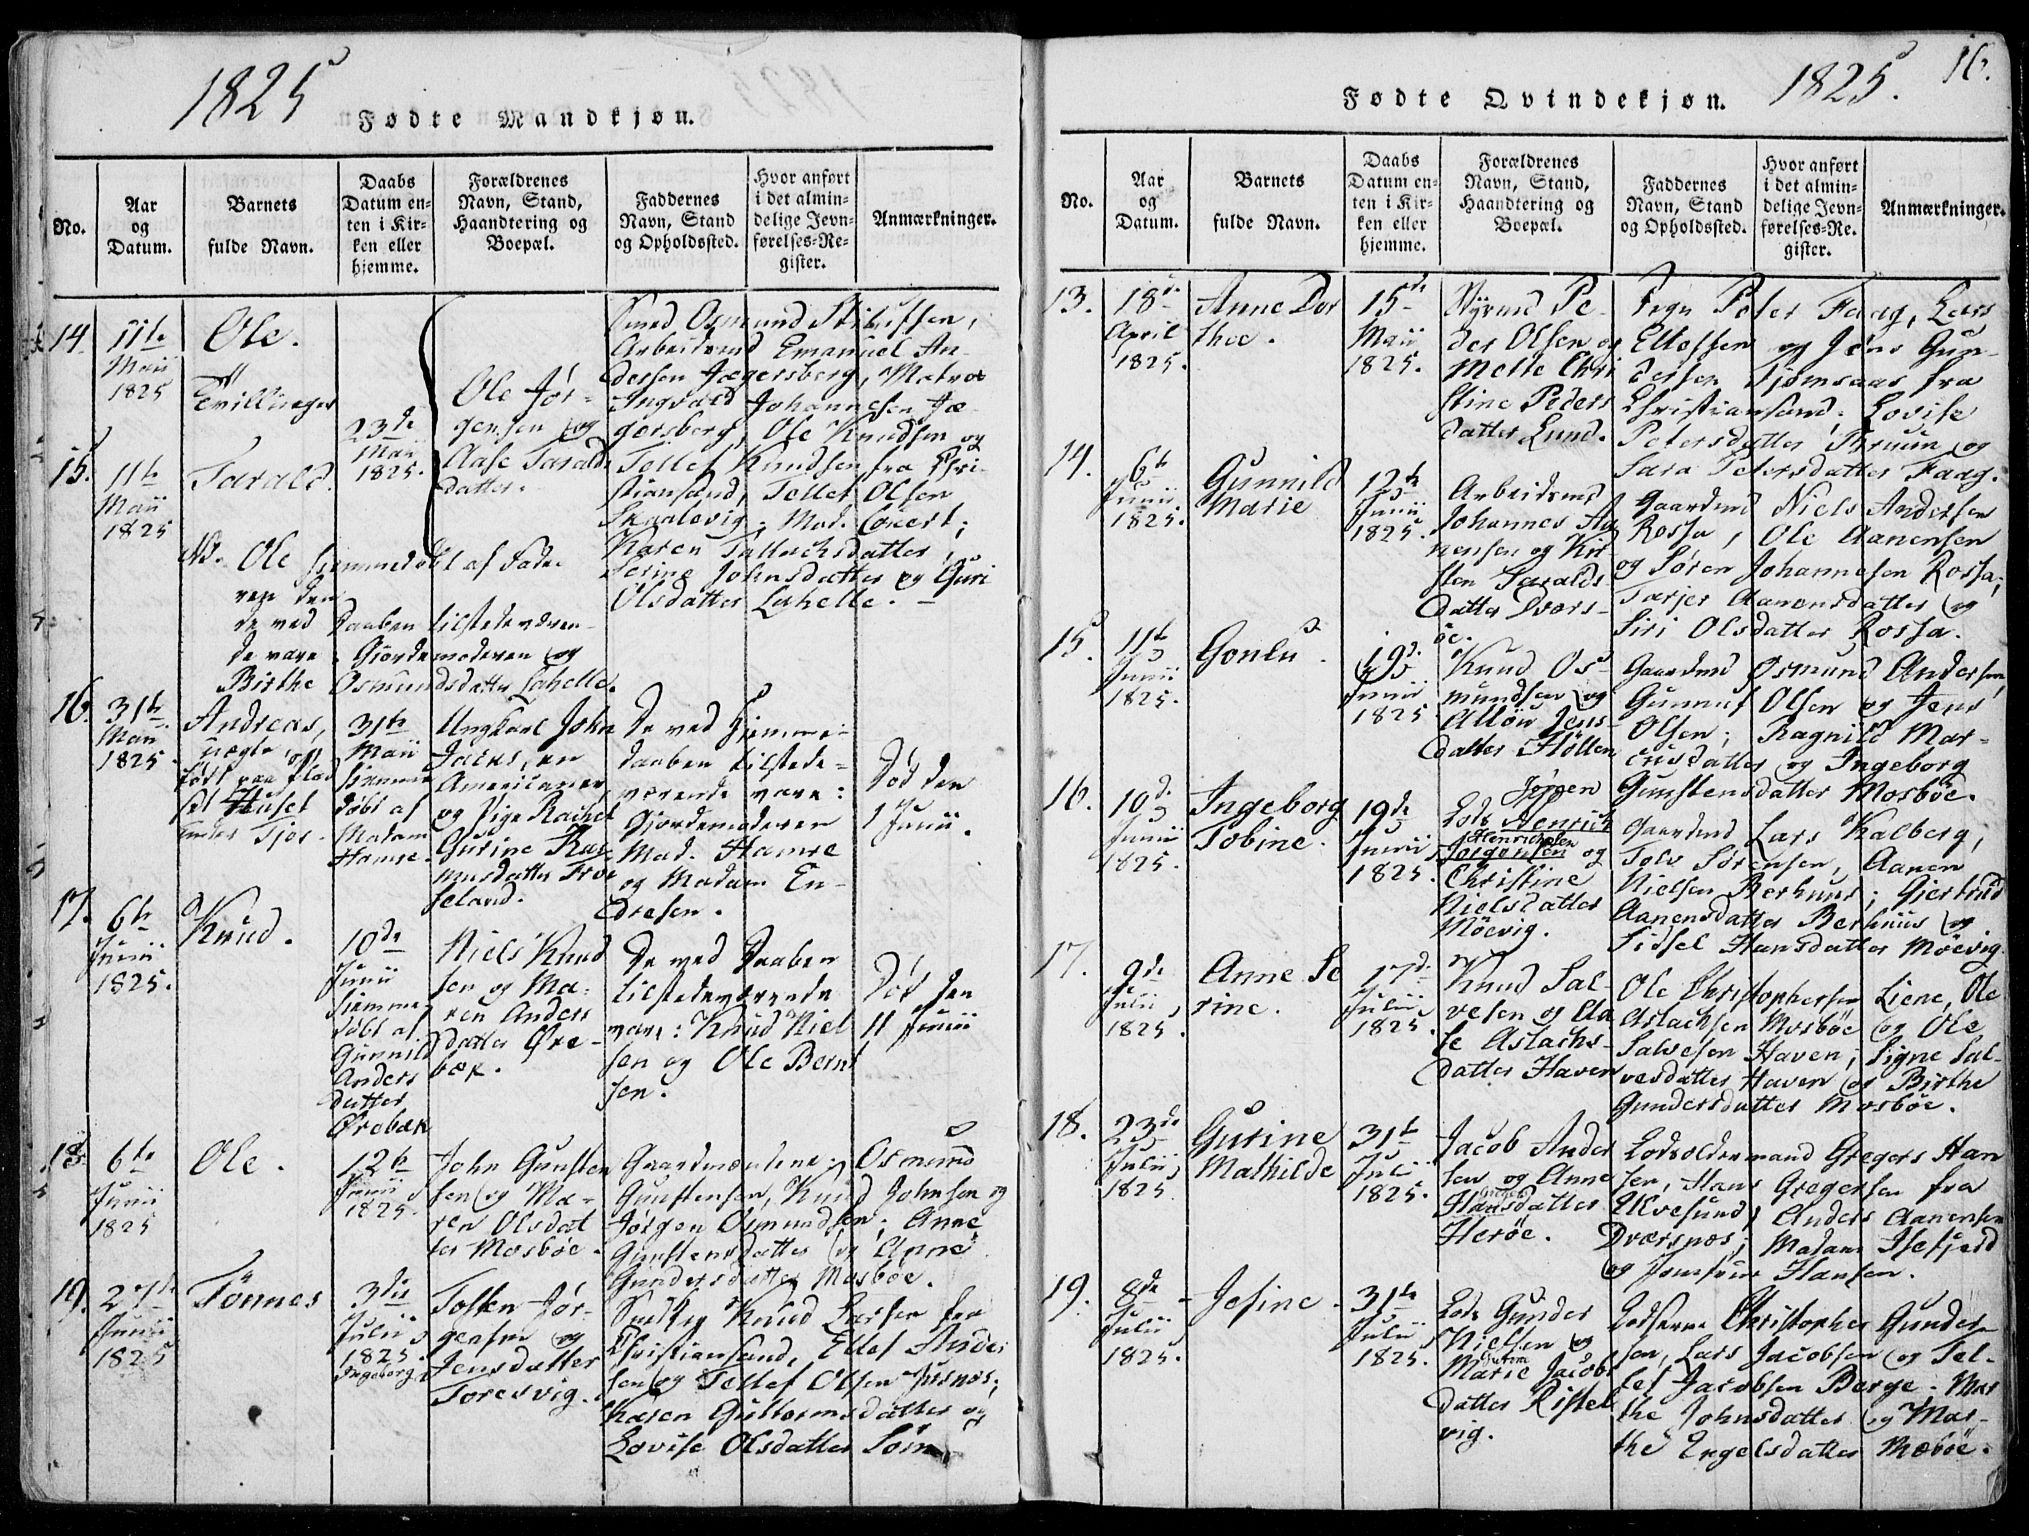 1825
Fødte Mandkjøn.
No.
Aar
og
Datum.
Barnets
fulde Navn.
Daabs
Datum en-
ten i Kir-
ken eller
hjemme.
Forældrenes
Navn, Stand,
Haandtering og
Boepæl.
Faddernes
Navn, Stand
og Opholdssted.
Hvor anført
i det almin-
delige Jevn-
førelses-Re-
gister.
Anmærkninger.
14.
11te
Maii
1825
Ole.
Tvillinger
15.
11te
Maii
1825
Tarald.
23de
Maii
1825.
Ole Jør-
gensen og
Aase Taralds
datter.
Smed Osmund
Arbeidsmd Emanuel An-
dersen Jægersberg, Matros
Ingvald Johannesen Jæ-
gersberg, Ole Knudsen og
Tellef Knudsen fra Chri-
stiansand, Tellef Olsen
Skaalevig; Mad. Conert;
Karen Tallachsdatter,
Serine Johnsdatter og Guri
Olsdatter Lahelle.
NB. Ole hjemmedøbt af Fade-
ren. Den
de ved Daaben tilstedeværen-
de vare Gjordemoderen og
Birthe Osmundsdatter Lahelle.
16.
31te
Maii
1825.
Andreas,
uægte, op-
født paa
set Huset
under
31te
Maii
hjemme
døbt af
Madam
Hamre.
Ungkarl John
Jacks, en
Americaner,
og Pige Rachel
Gurine Ras-
musdatter Tve
seland.
De ved Hjemme-
daaben tilstede-
værende vare:
Gjordemoderen
Mad. Hamre
og Madam En-
dresen.
Død den
1 Junii.
17.
6te
Junii
1825.
Knud.
10de
Junii
hjemme
døbt af
Gunnild
Anders
datter
Ørebæk
Niels Knud
sen og Ma-
ren Anders
datter Øre-
bæk.
De ved Daaben
tilstedeværende
vare: Knud Niel
sen og Ole Bernt
sen.
Død den
11 Junii
18.
6te
Junii
1825
Ole.
12te
Junii
1825.
John Gunsten
sen og Ma-
ren Olsdat
ter Mosbøe.
Gaardmændene; Osmund
Gunstensen, Knud Johnsen og
Jørgen Osmundsen; Anne
Gunstensdatter og Anne
Gundersdatter Mosbøe.
19.
27de
Junii
1825
Tönnes
3die
Julii
1825.
Ingeborg
Tosten Jør-
gensen og
Jensdatter
Toresvig.
Knud Larsen fra
Christiansand, Ellef Ander
sen og Tellef Olsen
Karen Guttormsdatter og
Lovise Olsdatter Søm.
Fødte Qvindekjøn.
1825.
16.
No.
Aar
og
Datum.
Barnets
fulde Navn.
Daabs
Datum en-
ten i Kir-
ken eller
hjemme.
Forældrenes
Navn, Stand,
Haandtering og
Boepæl.
Faddernes
Navn, Stand
og Opholdssted.
Hvor anført
i det almin-
delige Jevn-
førelses-Re-
gister.
Anmærkninger.
13.
18de
April
1825.
Anne Dor
thve.
15de
Maii
1825.
Styrmd Pe-
der Olsen og
Mette Chri
stine Peders
datter Lund.
Peter Faag, Lars
Ellefsen og Jens Gun-
dersen Tjomsaas fra
Christiansand; Lovise
Petersdatter Thruun og
Sara Petersdatter Faag.
14.
6te
Junii
1825.
Gunnild
Marie
12te
Junii
1825.
Arbeidsmd
Johannes Aa
nensen og Kir
sten Taralds
datter Dvers-
øe.
Gaardmd Niels Andersen
Rossa, Ole Aanensen
og Søren Johannesen Rossa;
Tarjer Aanensdatter og
Siri Olsdatter Rossa.
15.
11te
Junii
1825.
Gonlu.
19de
Junii
1825
Knud Os-
mundsen og
Allöu Jens-
datter Hölten
Gaardmd Osmund Andersen,
Gunnuf Olsen og Jens
Olsen; Ragnild Mar-
cusdatter og Ingeborg
Gunstensdatter Mosbøe.
16.
10de
Junii
1825.
Ingeborg
Tobine.
19de
Junii
1825.
Jørgen
Lods Henrich
Henrichsen
Jørgensen og
Christine
Nielsdatter
Möevig.
Gaardmd Lars Kalberg,
Tolv Sørensen, Aanen
Nielsen Berhuus; Gjertrud
Aanensdatter Berhuus og
Sidsel Hansdatter Möevig
17.
9de
Julii
1825.
Anne Se
rine.
17de
Julii
1825.
Knud Sal-
vesen og Aa
se Aslachs-
datter Haven
Ole Christophersen Liene, Ole
Aslachsen Mosbøe og Ole
Salvesen Haven; Signe Sal-
vesdatter Haven og Birthe
Gundersdatter Mosbøe.
18.
23de
Julii
1825
Gurine
Mathilde
31te
Julii
1825.
Jacob Ander
sen og Anne
Hansdatter
Herøe.
Lodsoldermand Gregers Han
sen, Hans Gregersen fra
Ulvesund, Anders Aanensen
Dværsnæs; Madam Isefjerd
og Jomfrue Hansen.
19.
8de
Julii
1825.
Josine.
31te
Julii
1825.
Lods Gunder
Nielsen og
Marie Jacobs
datter Ristel
vig.
Lodserne Christopher Gunder-
sen, Lars Jacobsen og Tel-
lef Jacobsen Berge. Mar
the Johnsdatter og Mar-
the Engelsdatter Mæbøe.